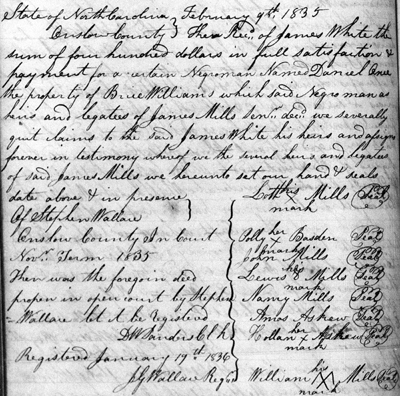 State of North Carolina } February 9th. 1835
Onslow County } Then Rec. of James White the
sum of four hundred dollars in full satisfaction &
payment for a certain Negroman Named Daniel Once
the property of Brice Williams which said Negro man as
heirs and legatees of James Mills Sen. decd. we severally
quit claims to the said James White his heirs and assigns
forever in testimony where of we the several heirs and legatees
of said James Mills we hereunto set our hand & seals
date above & in presence
Of Stephen Wallace
his X Mills Seal
mark
Onslow County In Court
Nov. Term 1835
Then was the foregoin deed
proven in open court by Stephen
Wallace let it be registered
D W Sanders Clk
Registered January 19th. 1836
J G Wallace Regr.
Polly her X Basden Seal
mark
John Mills Seal
Lewis his X Mills Seal
mark
Nancy Mills Seal
Amos Askew Seal
her X Askew Seal
mark
William his X Mills Seal
mark